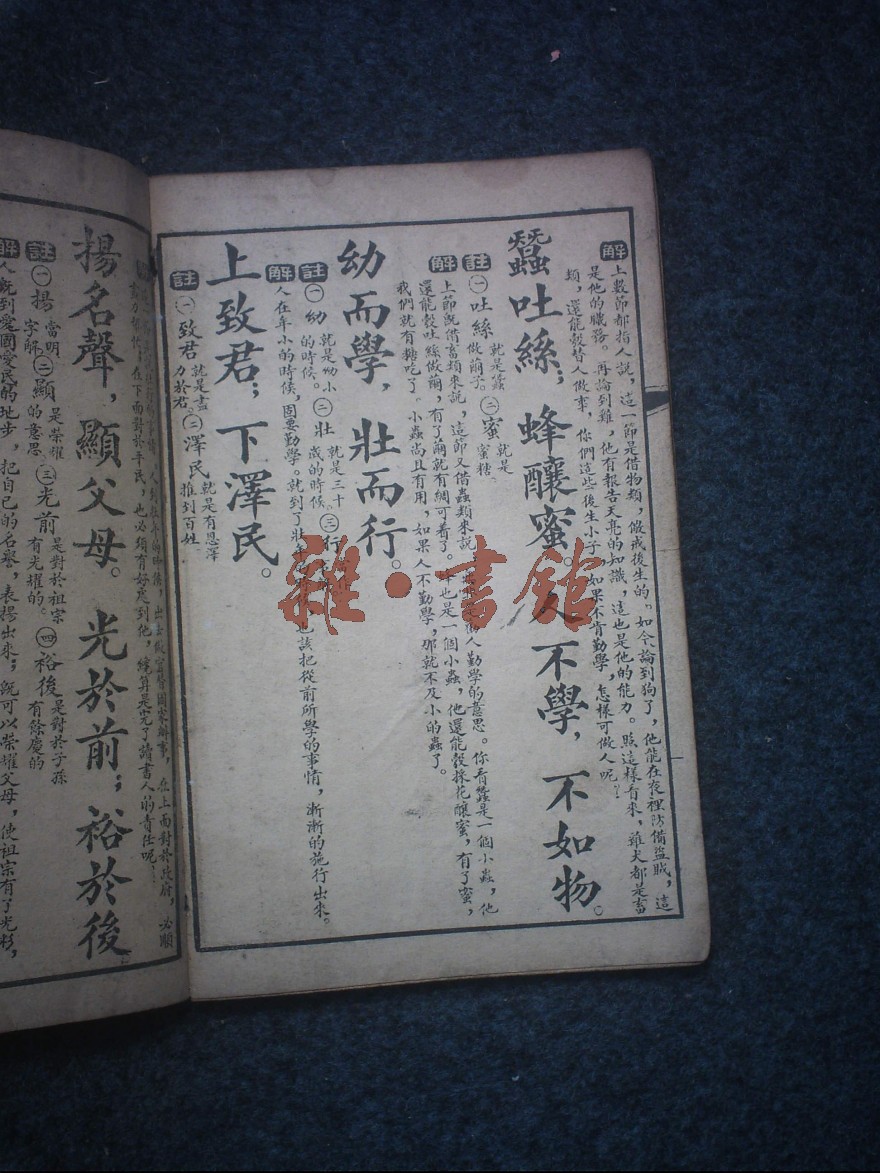 解 上數節都指人說，這一節是借物類，儆戒後生的。如今論到狗了，他能在夜裡防備盜賊，這
是他的職務。再論到雞，他有報告天亮的知識，這也是他的能力。照這樣看來，雞犬都是畜
類，還能彀替人做事，你們這些後生小子，如果不肯勤學，怎樣可做人呢？
蠶吐絲；蜂釀蜜。人不學，不如物。
註 ㊀吐絲 就是蠶做繭子。 ㊁蜜 就是蜜糖。
解 上節既借畜類來說，這節又借蟲類來說 人勤學的意思。你看蠶是一個小蟲，他
還能彀吐絲做繭，有了繭就有綢可着了。 也是一個小蟲，他還能彀採花釀蜜，有了蜜，
我們就有糖吃了。小蟲尚且有用，如果人不勤學，那就不及小的蟲了。
幼而學，壯而行。
註 ㊀幼 就是幼小的時候。 ㊁壯 就是三十歲的時候。 ㊂行
解 人在年小的時候，固要勤學。就到了壯 也該把從前所學的事情，漸漸的施行出來。
上致君；下澤民。
註 ㊀致君 就是盡力於君。 ㊁澤民 就是有恩澤推到百姓
出去做官替國家辦事，在上面對於政府，必須
在下面對於平民，也必須有好處到他，纔算是完了讀書人的責任呢！
揚名聲，顯父母。光於前；裕於後
註 ㊀揚 當明字解 ㊁顯 是榮耀的意思 ㊂光前 是對於祖宗有光耀的。 ㊃裕後 是對於子孫有餘慶的
解 人既到愛國愛民的地步，把自己的名譽，表揚出來；既可以榮耀父母，使祖宗有了光彩，
雜·書館